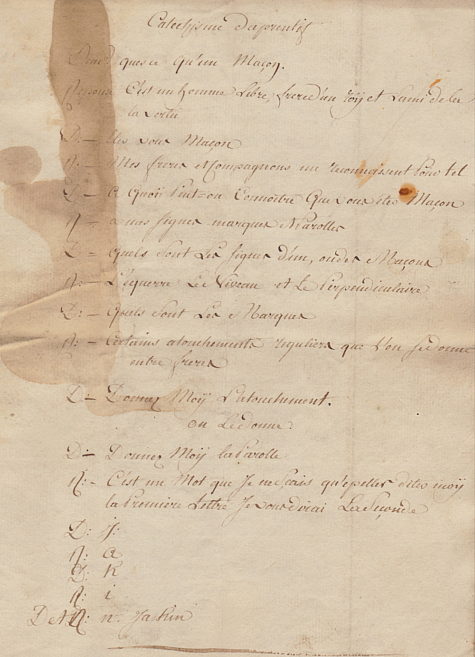 Catechisme d'aprentif
Dem. quesce qu'un Maçon.
Repons. C'est un homme Libre, frere d'un roÿ et L'ami de la
la Vertu
D: - Etes vous Maçon
R: - Mes freres et Compagnons me reconnoissent pour tel
D: - a quoi Peut-on Connoitre que vous etes Maçon
R: - a mes signes marques et Parolles
D: - quels sont Les signes d'un, ou des Maçons
R: - L'equerre Le Niveau et Le Perpendiculaire
D: - quels sont Les Marques
R: - Certains atouchements reguliers que l'on se donne
entre freres
D - Donnez Moÿ L'atouchement.
on Le donne
D: - Donnez Moÿ la Parolle
R: - C'est un Mot que Je ne scais qu'epeller dites moÿ
la Premiere Lettre Je vous dirai La Seconde
D: J:
R: a
D: K
R: i
D et R: n. Jakin